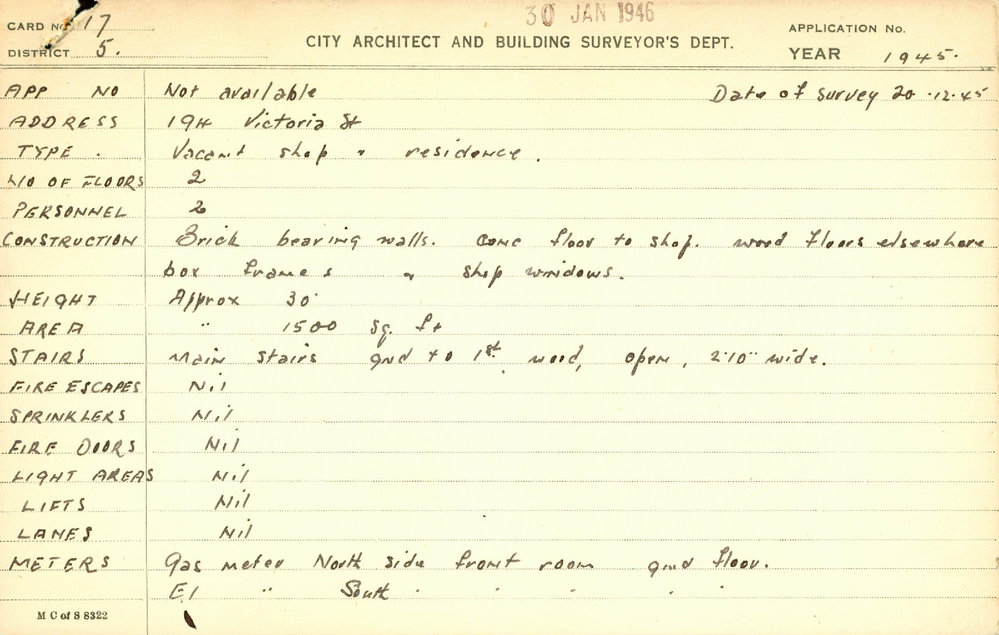 30 JAN 1946
CARD No. 17
DISTRICT 5.
CITY ARCHITECT AND BUILDING SURVEYOR'S DEPT.
APPLICATION No.
YEAR 1945.
APP NO Not available Date of survey 20.12.45
ADDRESS 194 Victoria St
TYPE. Vacant shop " residence.
NO OF FLOORS 2
PERSONNEL 2
CONSTRUCTION Brick bearing walls. conc floor to shop. wood floors elsewhere
box frames " shop windows.
HEIGHT Approx 30'
AREA " 1500 sq. ft
STAIRS Main stairs gnd to 1st. wood, open, 2'10" wide.
FIRE ESCAPES Nil
SPRINKLERS Nil
FIRE DOORS Nil
LIGHT AREAS Nil
LIFTS Nil
LANES Nil
METERS Gas meter North side front room gnd floor.
El " South " " " " "
M C of S 8322